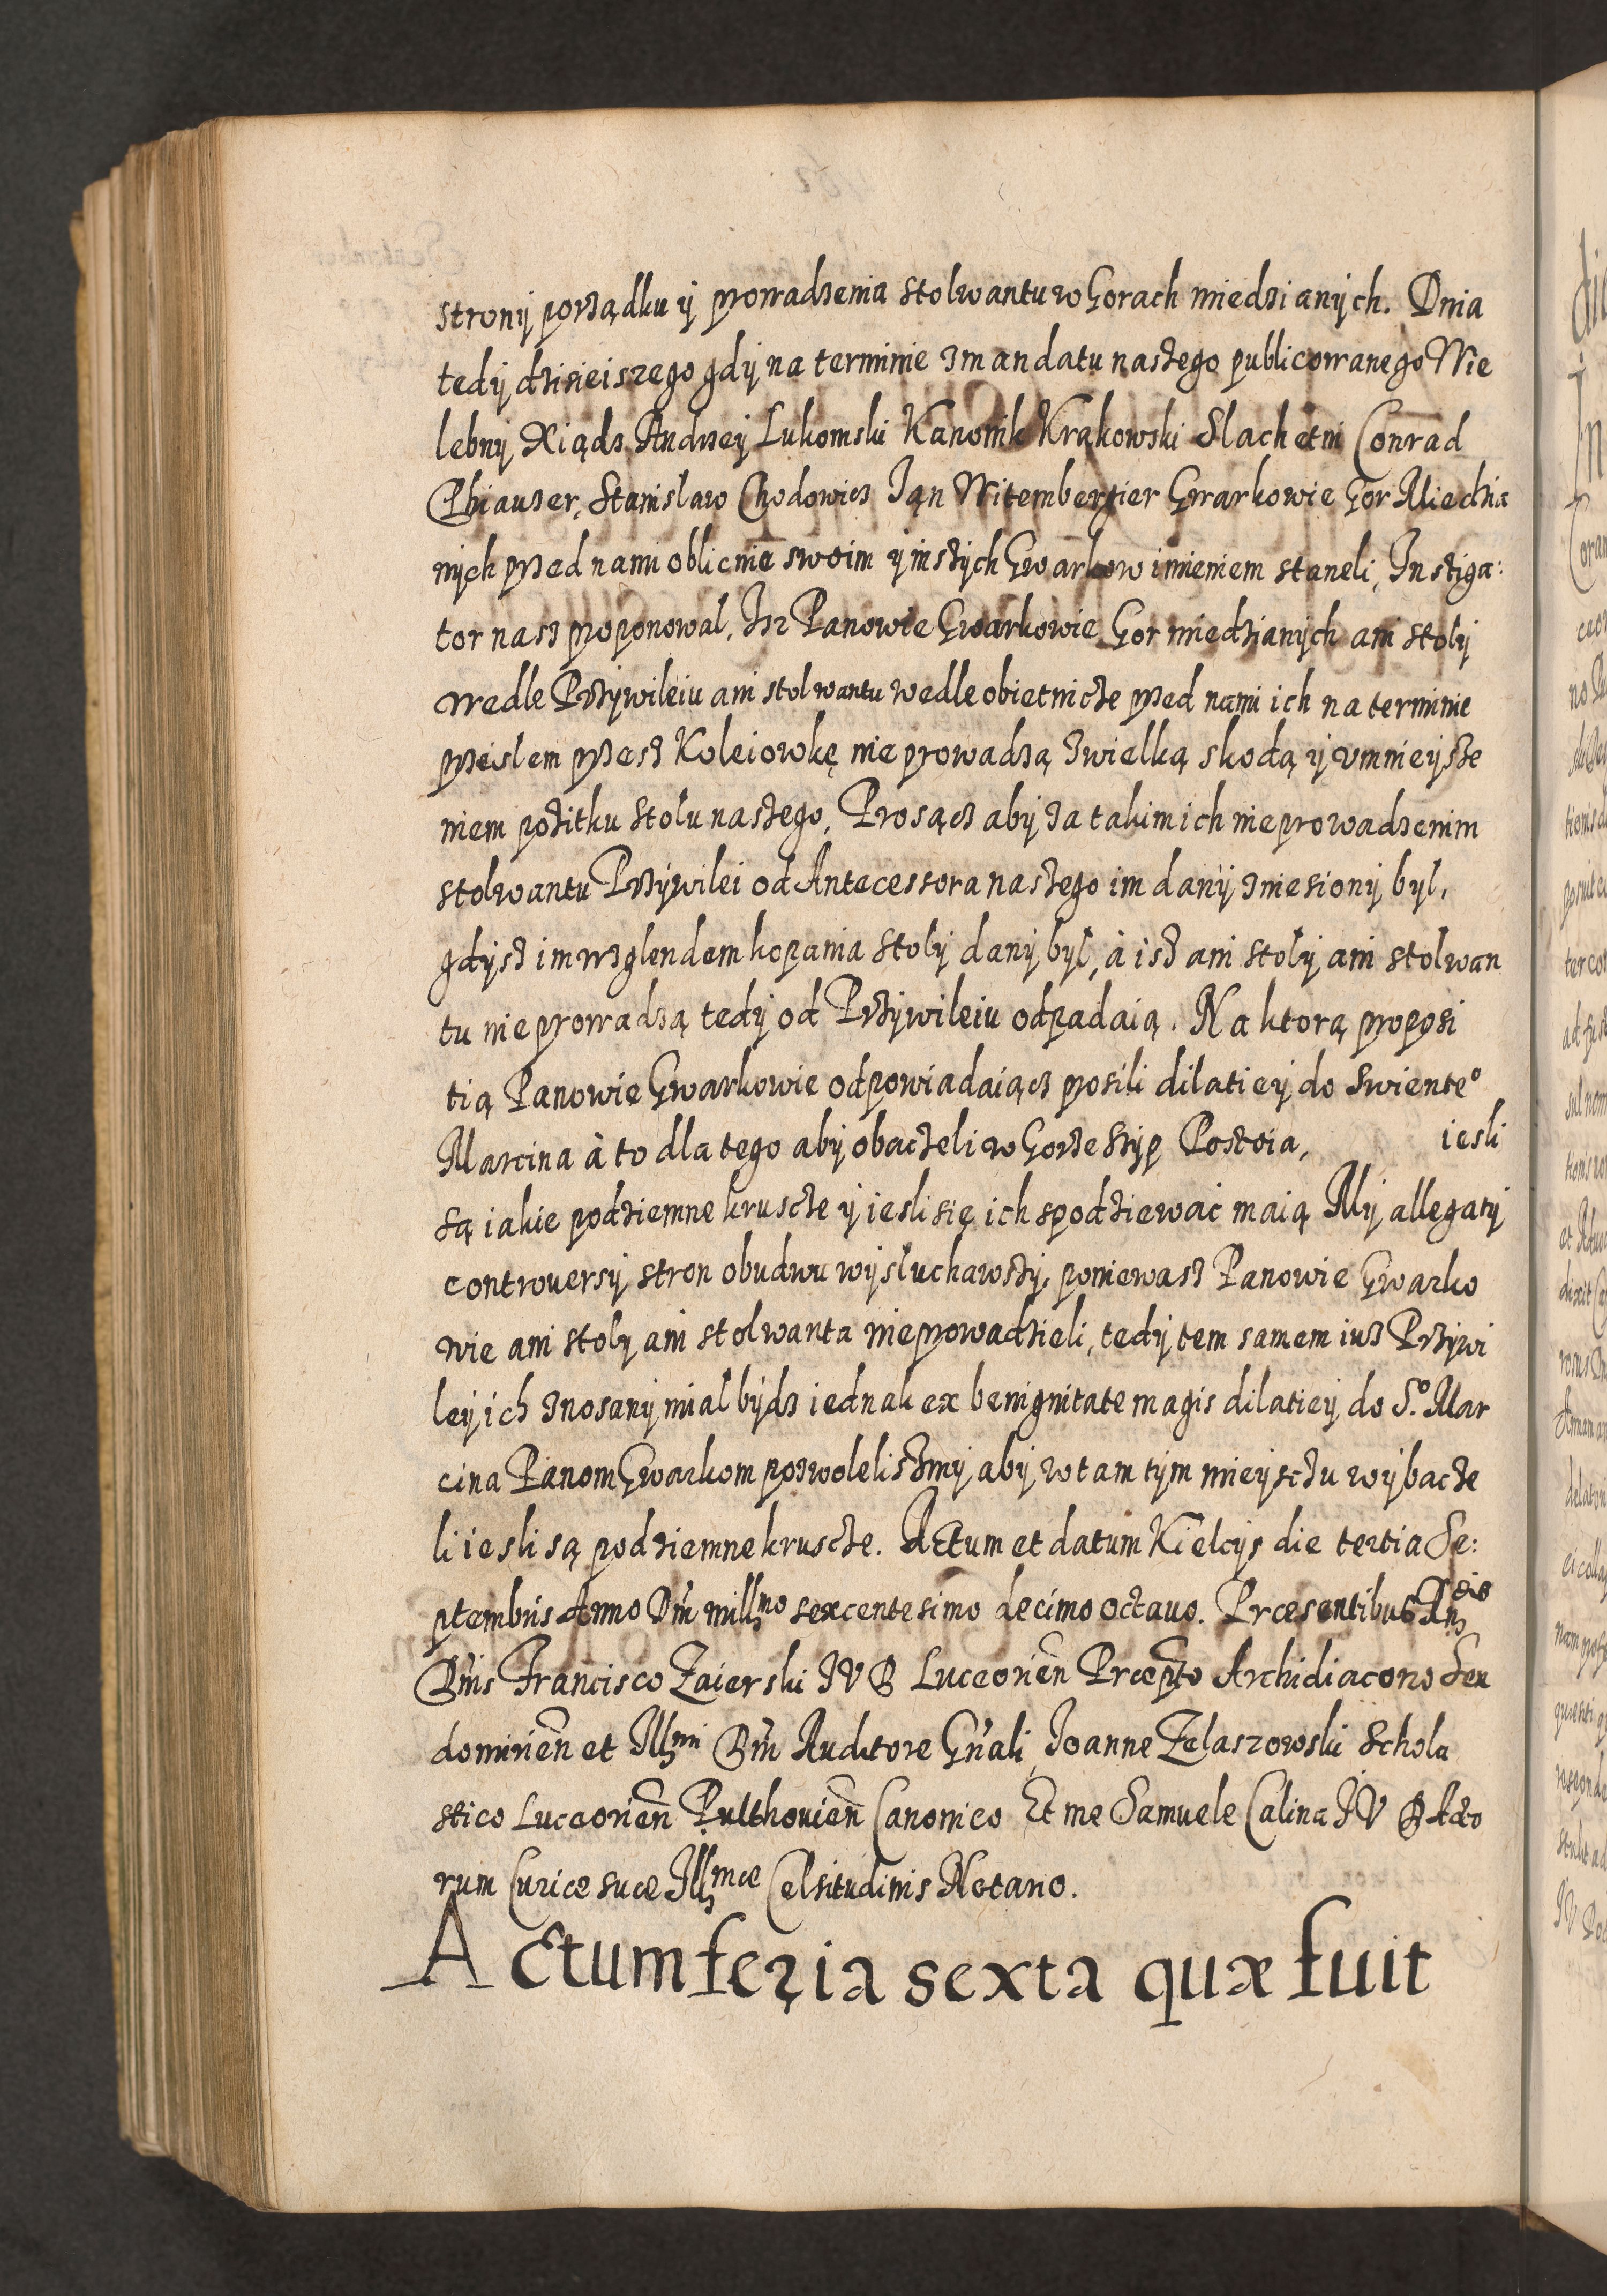 strony porządku ÿ prowadzenia stolwantu w Gorach miedzianÿch. Dnia
tedÿ dzisieiszego gdÿ na terminie z mandatu naszego publicowanego Wie
lebnÿ Xiądz Andrzeÿ Lukomski Kanonik Krakowski Slachetni Conrad
Phiauzer, Stanislaw Chodowicz Jan Witembergier Gwarkowie Gor Miedzia
nÿch przed nami oblicnie swoim ÿ inszÿch Gwarkow imieniem staneli, Instiga:
tor nasz proponowal, Isz Panowie Gwarkowie Gor miedzianÿch ani stolÿ
wedle Przÿwileiu ani stolwantu wedle obietnicze przed nami ich na terminie
przeslem przesz Koleiowkę nie prowadzą z wielką skodą ÿ vmnieÿsze
niem pozitku stolu naszego, Prosącz abÿ za takim ich nieprowadzenim
stolwantu Przÿwilei od Antecessora naszego im danÿ zniesionÿ byl,
gdÿsz im wzglendem kopania stolÿ danÿ byl, à isz ani stolÿ ani stolwan
tu nie prowadzą tedÿ od Przÿwileiu odpadaią. Na ktorą proposi
tią Panowie Gwarkowie odpowiadaiącz prosili dilatieÿ do Swienteº
Marcina à to dla tego abÿ obaczeli w Gorze Szÿp Postoia, iesli
są iakie podziemne krusze ÿ iesli się ich spodziewać maią Mÿ allegatÿ
controuersÿ stron obudwu wÿsluchawszÿ, poniewasz Panowie Gwarko
wie ani stolÿ ani stolwanta nieprowadzieli, tedÿ tem samem iusz Przÿwi
leÿ ich znosanÿ mial bÿdz iednak ex benignitate magis dilatieÿ do S.º Mar
cina Panom Gwarkom pozwolelisszmÿ, abÿ w tam tÿm mieÿsczu wÿbacze
li iesli są podziemne krusze. Actum et datum Kielcÿs die tertia Se:
ptembris Anno Dni millmo sexcentesimo decimo octauo. Præsentibus
Dnis Francisco Zaierski JVD Luceorien Præpto Archidiacono Sen
domirien et Illmi Dni Auditore Gnali, Joanne Zelaszowski Schola
stico Luceorien Pulthouien Canonico Et me Samuele Calina JV D Acto
rum Curiæ suæ Illmæ Celsitudinis Notario.
Actum feria sexta quæ fuit